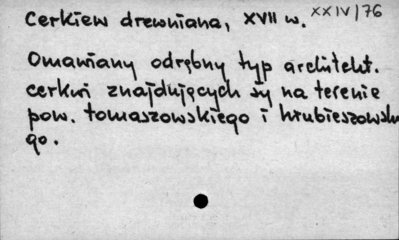 Cerkiew drewniana, XVII w. XXIV/76
Omawiany odrębny typ architekt.
cerkwi znajdujących się na terenie
pow. tomaszowskiego i hrubieszowskie
go.